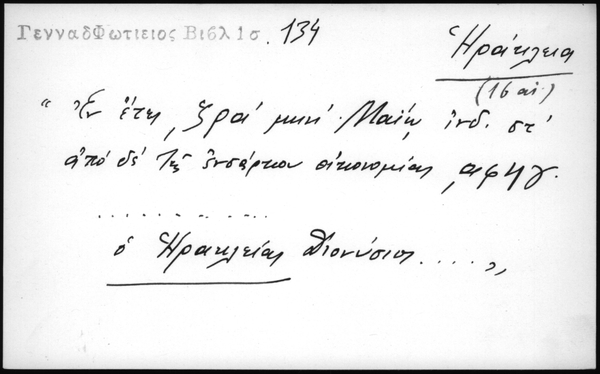 ΓενναδΦωτιειος Βιβλ 1σ. 134
Ἡράκλεια
(16 αἰ.)
“ Ἐν ἔτει ͵ζρα΄ μηνὶ Μαΐῳ, ἰνδ. στ΄
ἀπὸ δὲ τῆς ἐνσάρκου οἰκονομίας ͵αφϟγ.
. . . . . . . . . . . . .
ὁ Ἡρακλείας Διονύσιος . . . . „